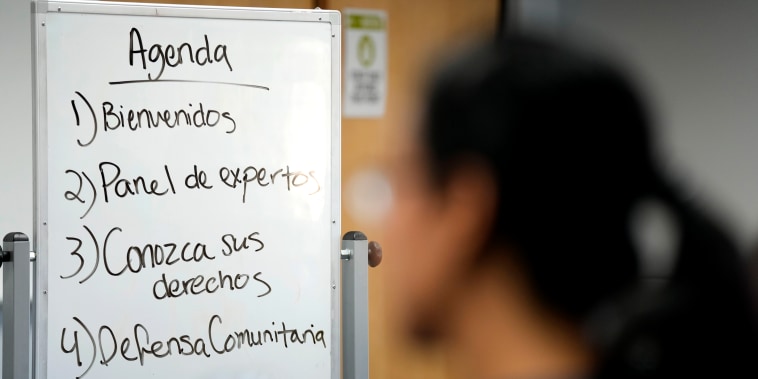 Agenda
1) Bienvenidos
2) Panel de expertos
3) Conozca sus
derechos
4) Defensa Comunitaria